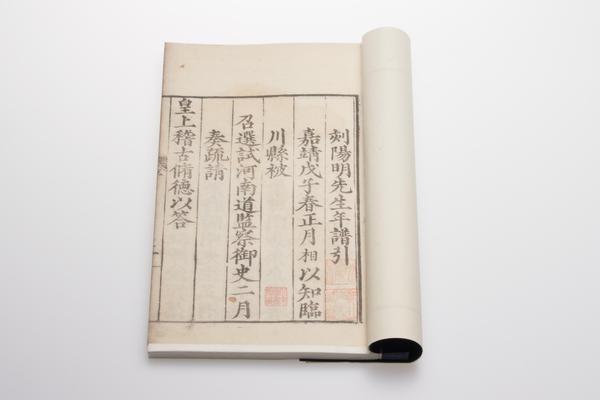 刻陽明先生年譜引
嘉靖戊子春正月相以知臨
川縣被
召選試河南道監察御史二月
奏疏請
皇上稽古脩德以答